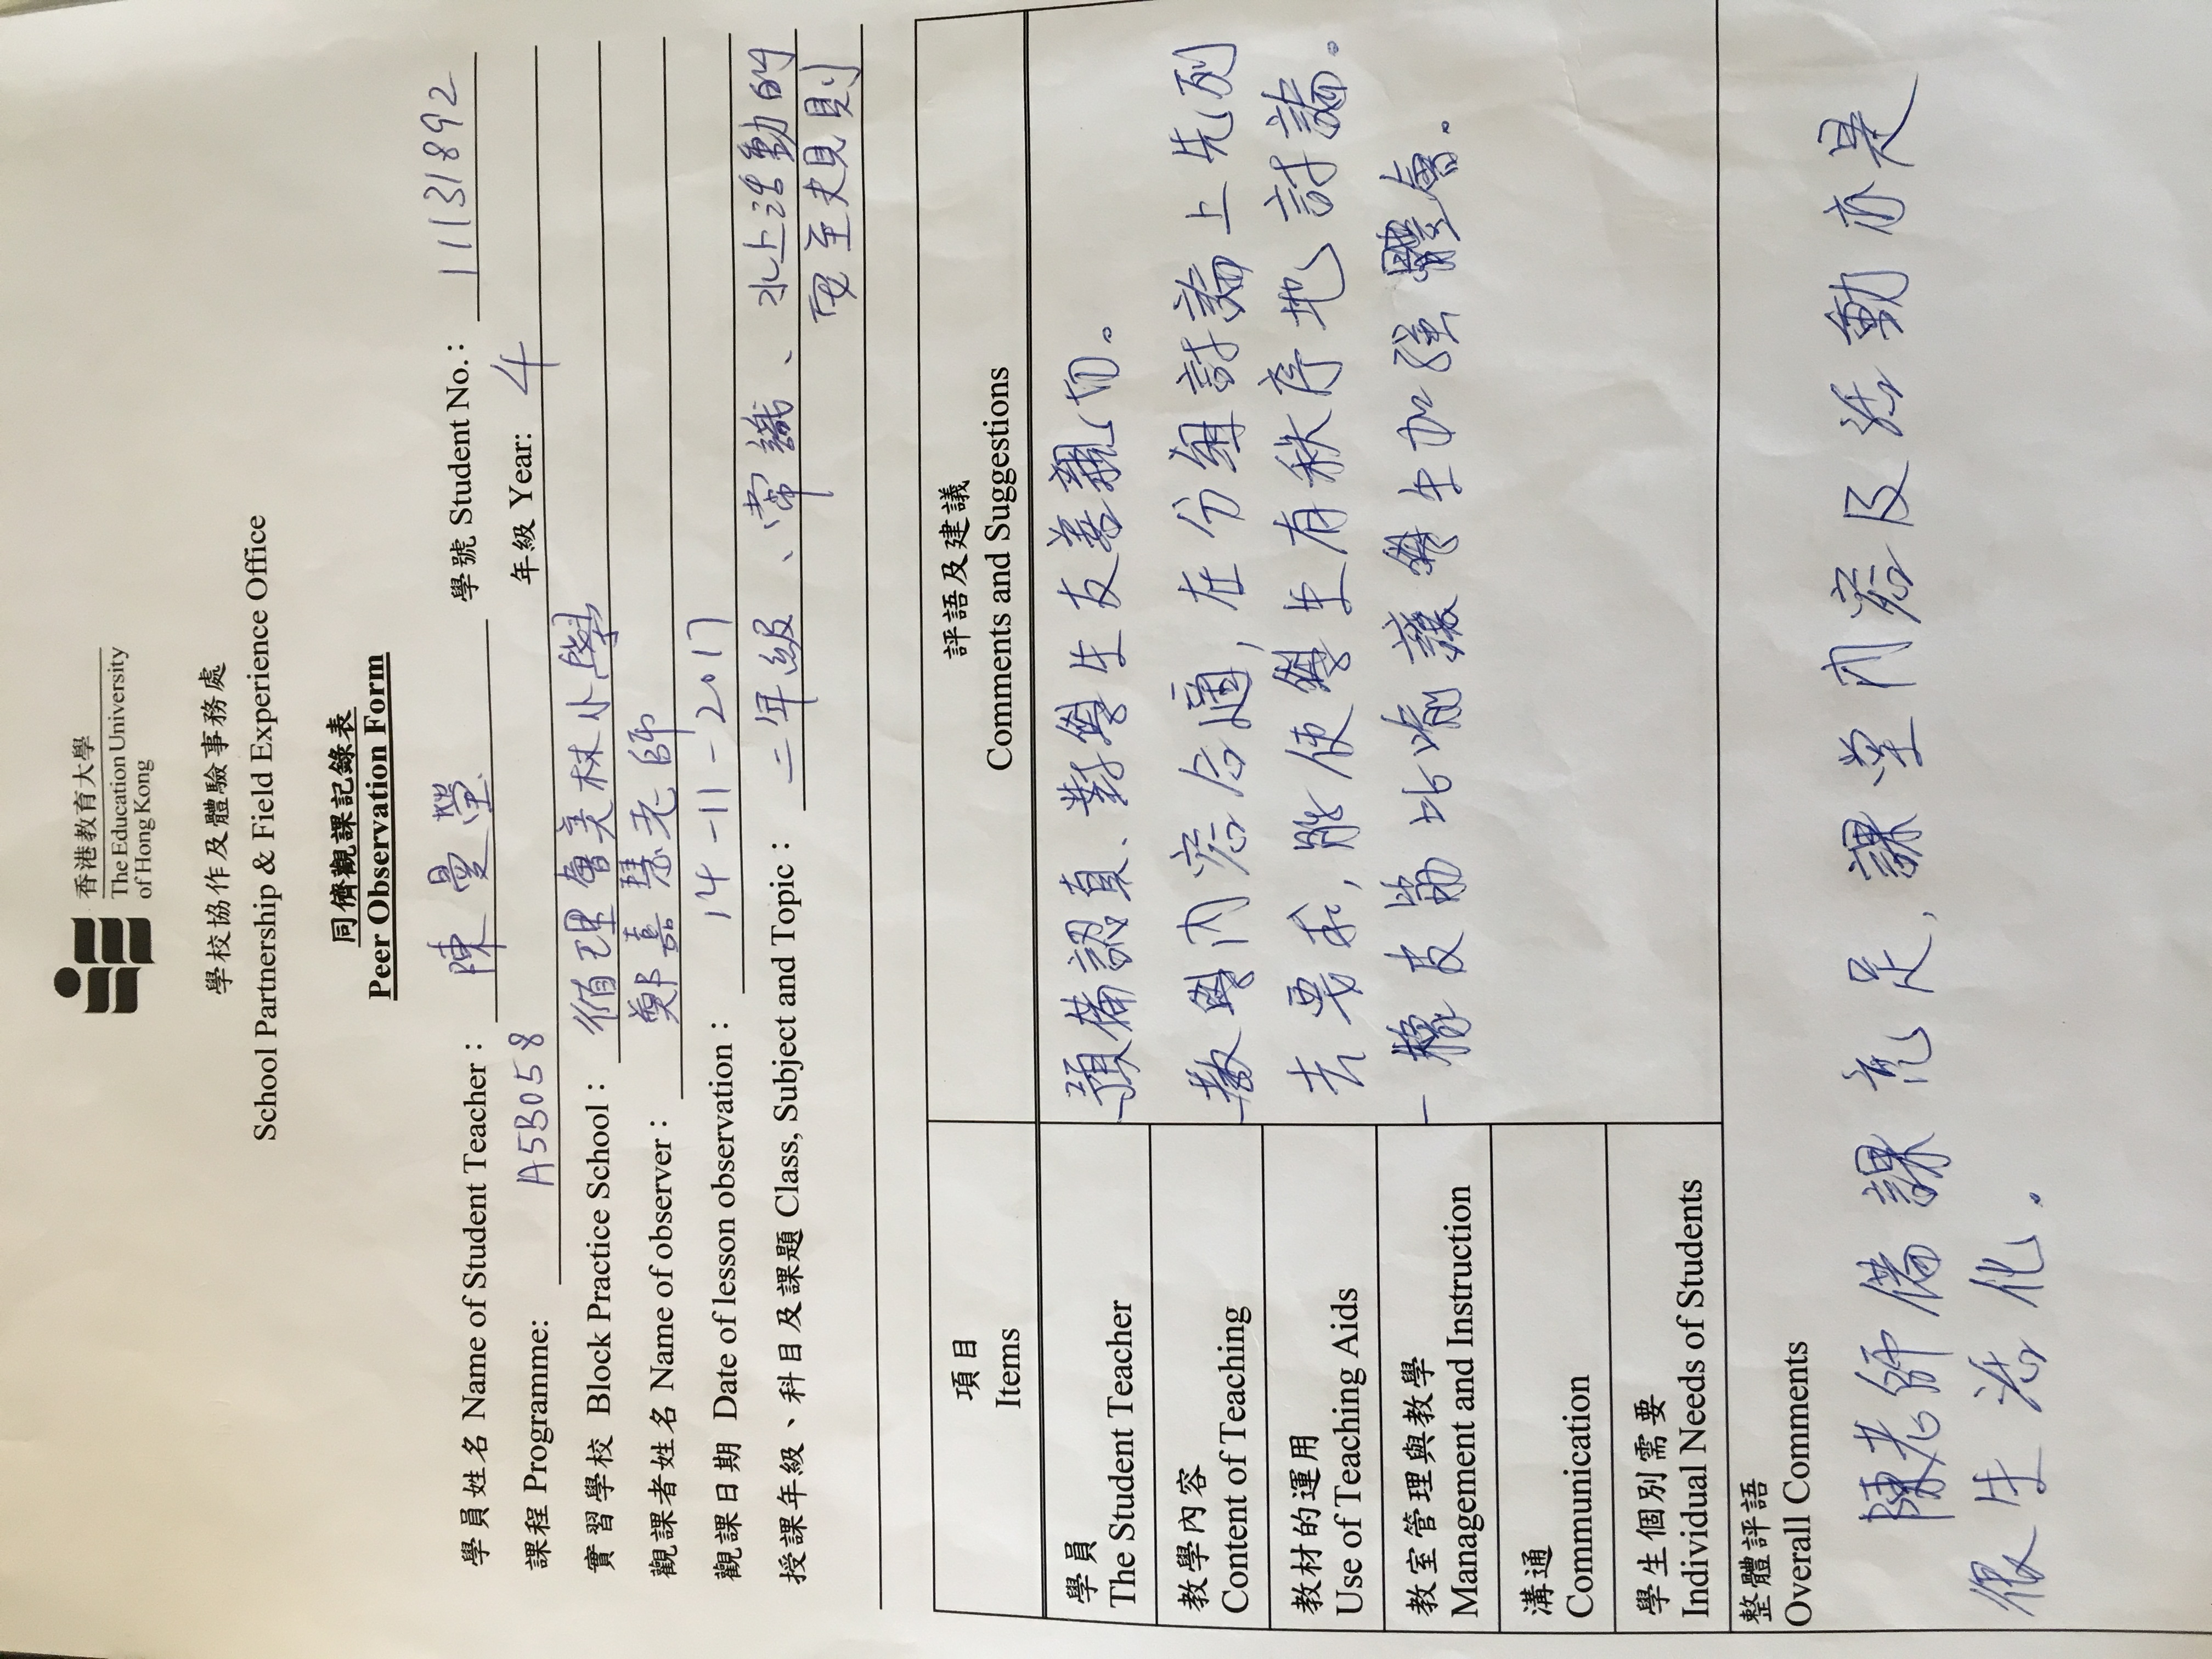 香港教育大學
The Education University
of Hong Kong
學校協作及體驗事務處
School Partnership & Field Experience Office
同儕觀課記錄表
Peer Observation Form
學員姓名 Name of Student Teacher： 陳曼瑩 學號 Student No.： 11131892
課程 Programme: A5B058 年級 Year: 4
實習學校 Block Practice School： 循理會美林小學
觀課者姓名 Name of observer： 鄭嘉慧老師
觀課日期 Date of lesson observation： 14-11-2017
授課年級、科目及課題 Class, Subject and Topic： 二年級、常識、水上活動的
安全規則
項目
Items
評語及建議
Comments and Suggestions
學員
The Student Teacher
預備認真、對學生友善親切。
教學內容
Content of Teaching
教學內容合適，在分組討論上先列
教材的運用
Use of Teaching Aids
去要求，能使學生有秩序地討論。
教室管理與教學
Management and Instruction
橡皮筋比喻讓學生加強體會。
溝通
Communication
學生個別需要
Individual Needs of Students
整體評語
Overall Comments
陳老師備課充足，課堂內容及活動亦是
很生活化。